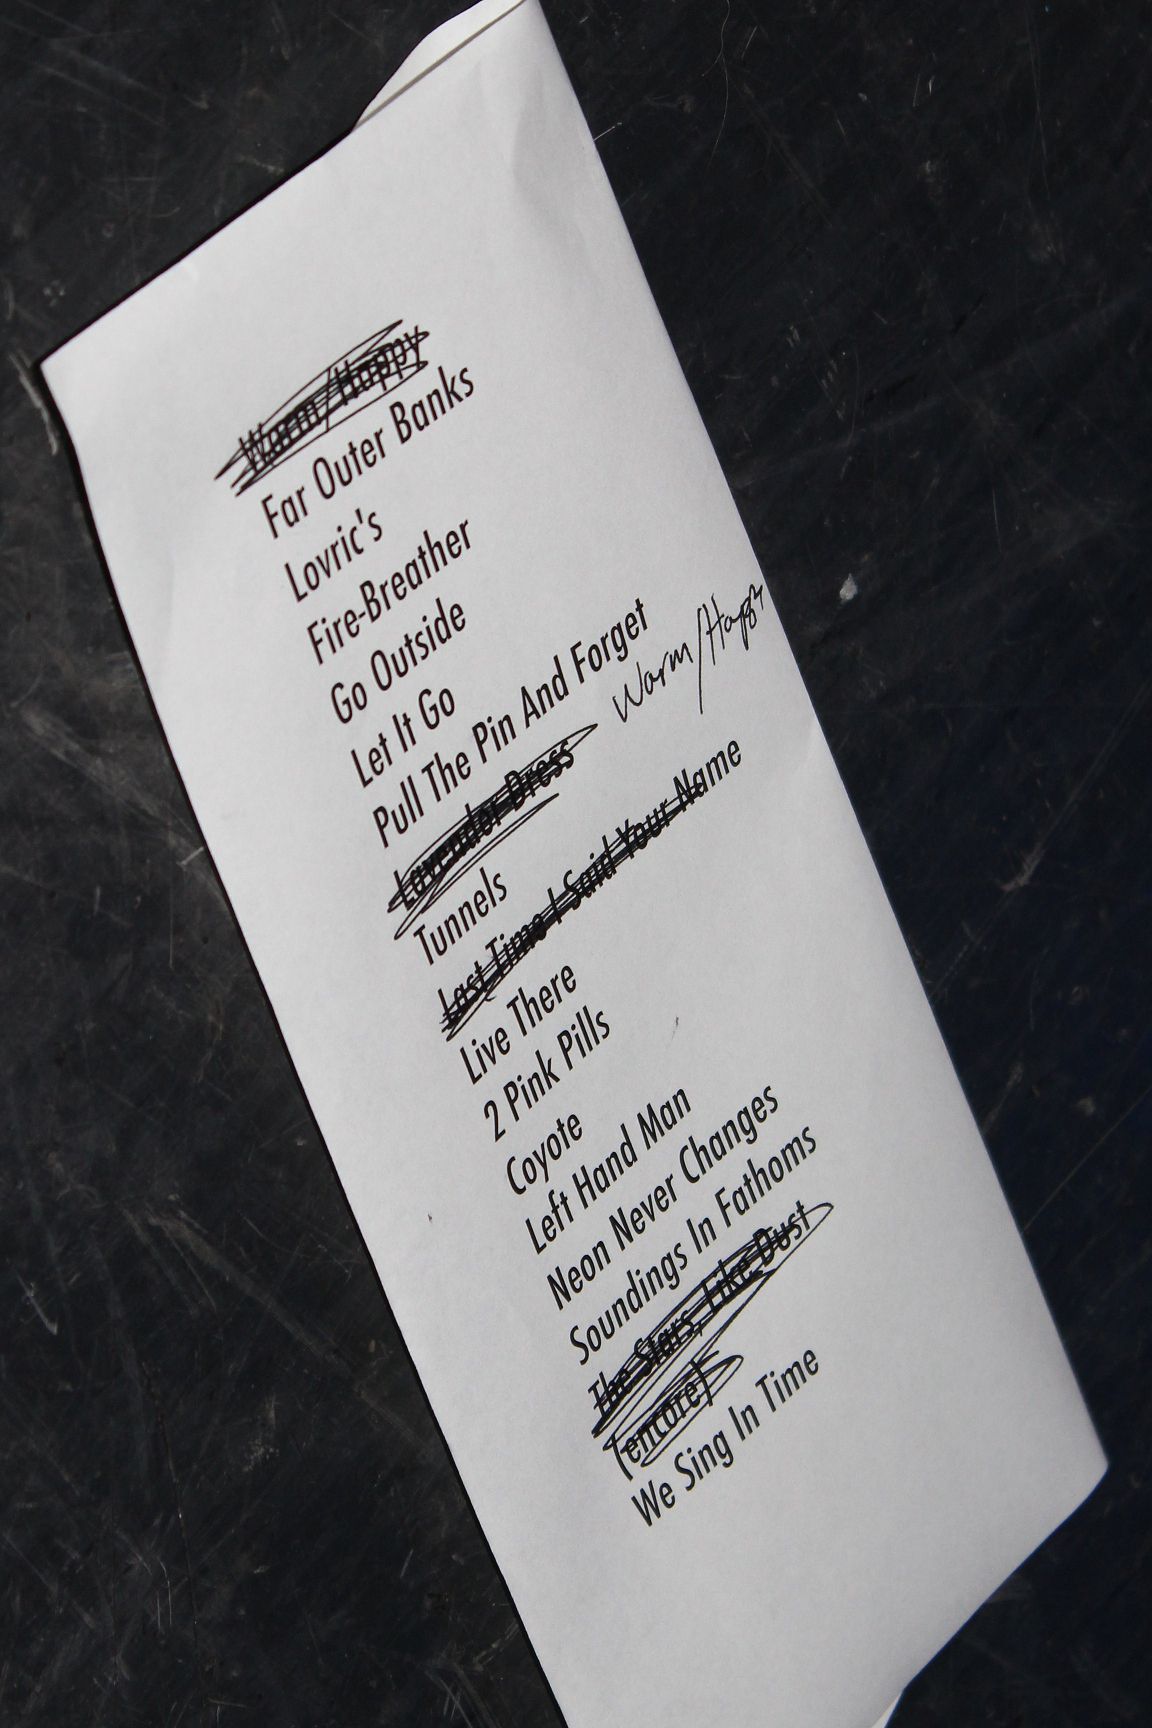 Warm/Happy
Far Outer Banks
Lovric's
Fire-Breather
Go Outside
Let It Go
Pull The Pin And Forget
Lavender Dress Warm/Happy
Tunnels
Last Time I Said Your Name
Live There
2 Pink Pills
Coyote
Left Hand Man
Neon Never Changes
Soundings In Fathoms
The Stars, Like Dust
(encore)
We Sing In Time